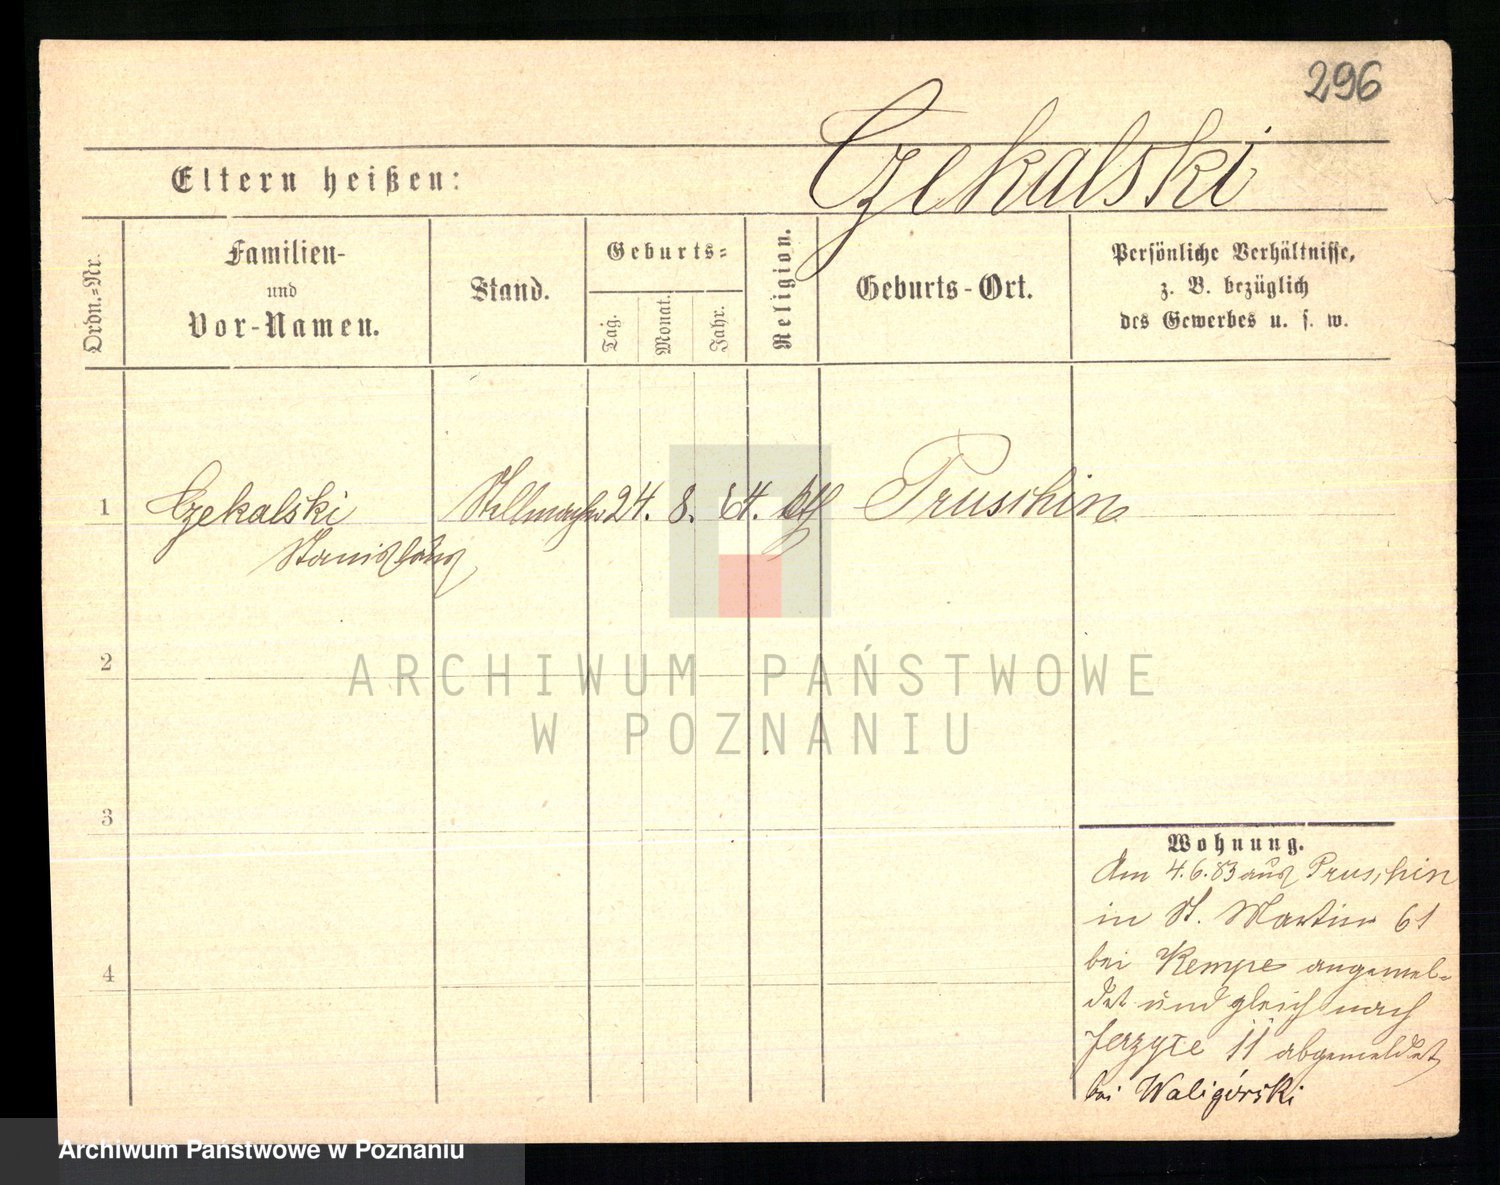 296
Czekalski
Eltern heißen:
Ordn.-Nr.
Familien-
und
Vor-Namen.
Stand.
Geburts-
Tag.
Monat.
Jahr.
Religion.
Geburts-Ort.
Persönliche Verhältnisse,
z. B. bezüglich
des Gewerbes u. s. w.
1 Czekalski Stellmacher 24. 8. 64. kth Pruschin
Stanislaus
2
ARCHIWUM PAŃSTWOWE
W POZNANIU
3
Wohnung.
Am 4.6.83 aus Pruschin
in St. Martin 61
bei Kempe angemel-
det und gleich nach
4
Jerzyce 11 abgemeldet
bei Waligórski
Archiwum Państwowe w Poznaniu